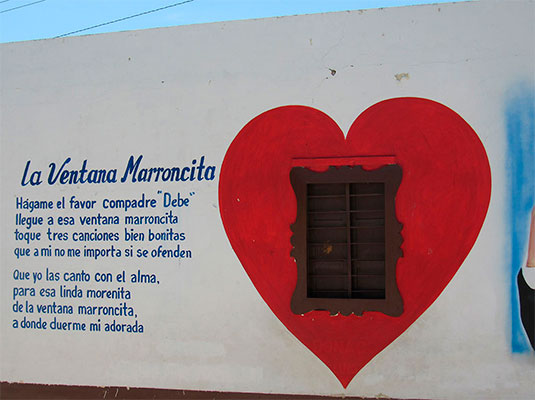 La Ventana Marroncita
Hágame el favor compadre "Debe"
llegue a esa ventana marroncita
toque tres canciones bien bonitas
que a mi no me importa si se ofenden
Que yo las canto con el alma,
para esa linda morenita
de la ventana marroncita,
a donde duerme mi adorada